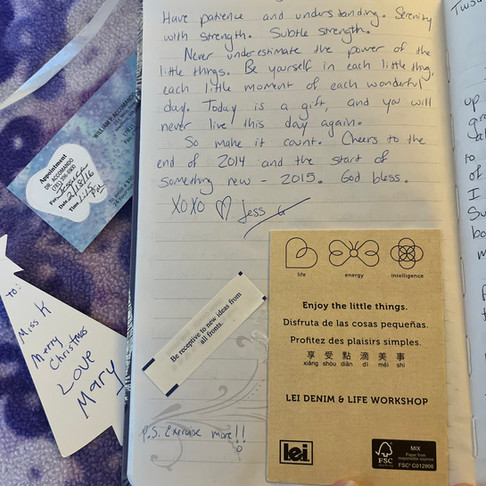 Have patience and understanding. Serenity
with strength. Subtle strength.
Never underestimate the power of the
little things. Be yourself in each little thing,
each little moment of each wonderful
day. Today is a gift, and you will
never live this day again.
So make it count. Cheers to the
end of 2014 and the start of
something new - 2015. God bless.
XOXO ♡ Jess G
Be receptive to new ideas from
all fronts.
P.S. Exercise more!!
life energy intelligence
Enjoy the little things.
Disfruta de las cosas pequeñas.
Profitez des plaisirs simples.
享受點滴美事
xiǎng shòu diǎn dī měi shì
LEI DENIM & LIFE WORKSHOP
lei
FSC
MIX
Paper from
responsible sources
FSC® C012906
Appointment
DR. ACCOMANDO
For
Date 2/18/16
Time
TO:
Miss K
Merry
Christmas
Love
Mary
up
to
of
I